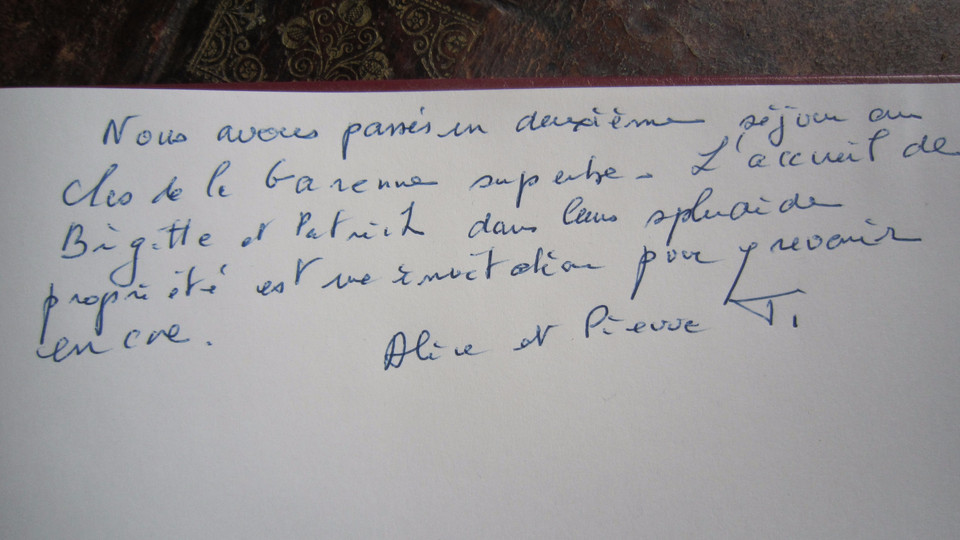 Nous avons passés un deuxième séjour au
Clos de la Garenne superbe. L'accueil de
Brigitte et Patrick dans leur splendide
propriété est une invitation pour y revenir
encore.
Alice et Pierre T.